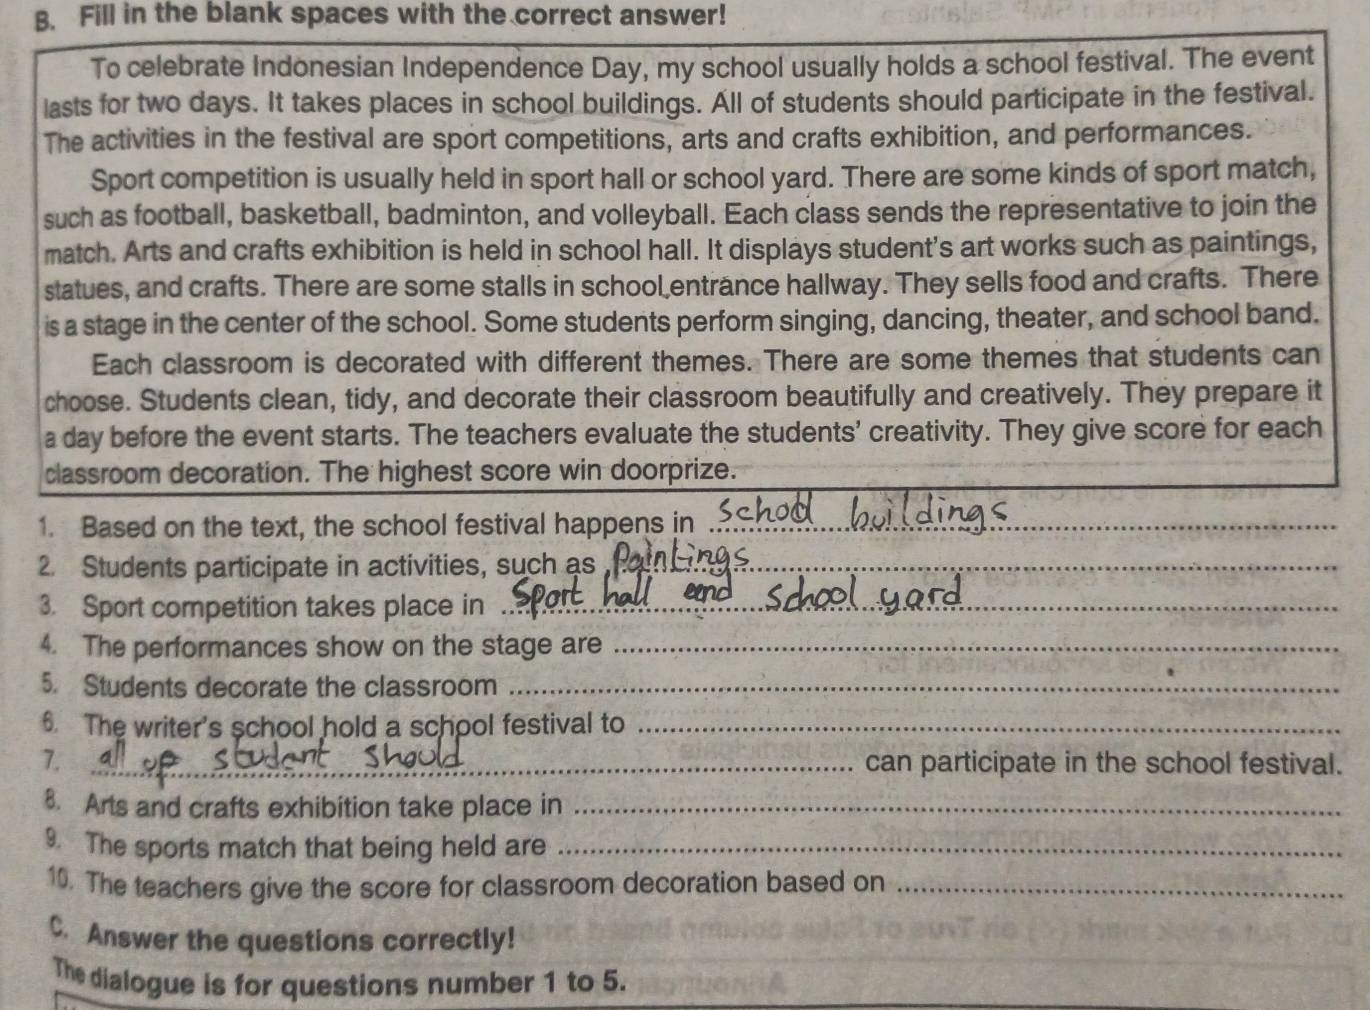 B. Fill in the blank spaces with the correct answer!
To celebrate Indonesian Independence Day, my school usually holds a school festival. The event
lasts for two days. It takes places in school buildings. All of students should participate in the festival.
The activities in the festival are sport competitions, arts and crafts exhibition, and performances.
Sport competition is usually held in sport hall or school yard. There are some kinds of sport match,
such as football, basketball, badminton, and volleyball. Each class sends the representative to join the
match. Arts and crafts exhibition is held in school hall. It displays student's art works such as paintings,
statues, and crafts. There are some stalls in school entrance hallway. They sells food and crafts. There
is a stage in the center of the school. Some students perform singing, dancing, theater, and school band.
Each classroom is decorated with different themes. There are some themes that students can
choose. Students clean, tidy, and decorate their classroom beautifully and creatively. They prepare it
a day before the event starts. The teachers evaluate the students' creativity. They give score for each
classroom decoration. The highest score win doorprize.
1. Based on the text, the school festival happens in school buildings
2. Students participate in activities, such as Paintings
3. Sport competition takes place in Sport hall and school yard
4. The performances show on the stage are
5. Students decorate the classroom
6. The writer's school hold a school festival to
7. all of student should can participate in the school festival.
8. Arts and crafts exhibition take place in
9. The sports match that being held are
10. The teachers give the score for classroom decoration based on
C. Answer the questions correctly!
The dialogue is for questions number 1 to 5.